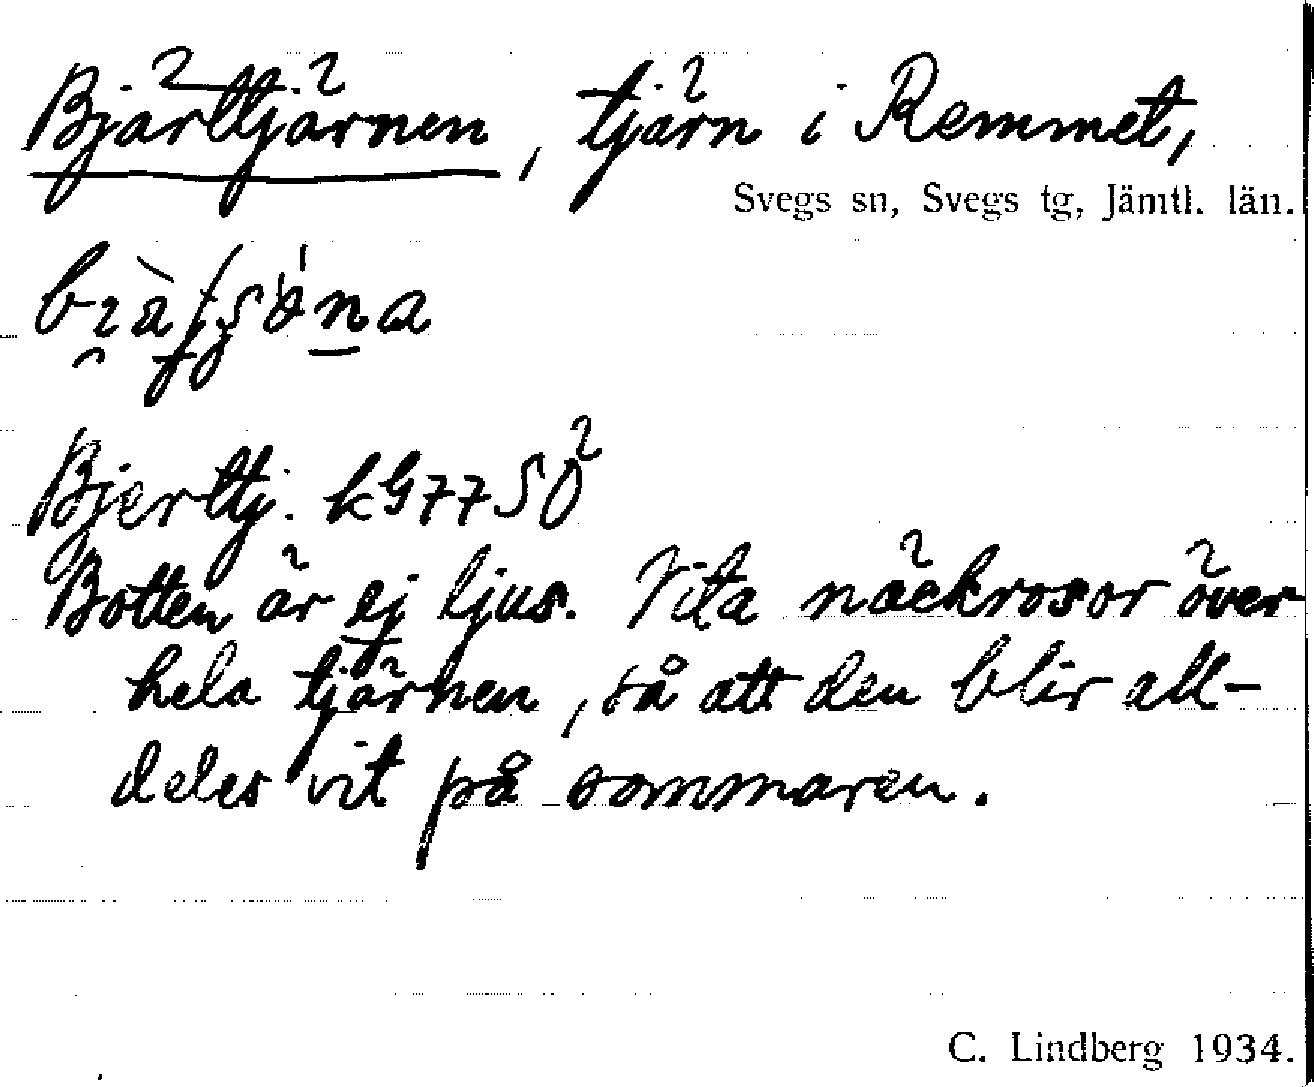 Bjärttjärnen, tjärn i Remmet,
Svegs sn, Svegs tg, Jämtl. län.
Bjerttj. kG77SÖ
Botten är ej ljus. Vita näckrosor över
hela tjärnen, så att den blir all-
deles vit på sommaren.
C. Lindberg 1934.